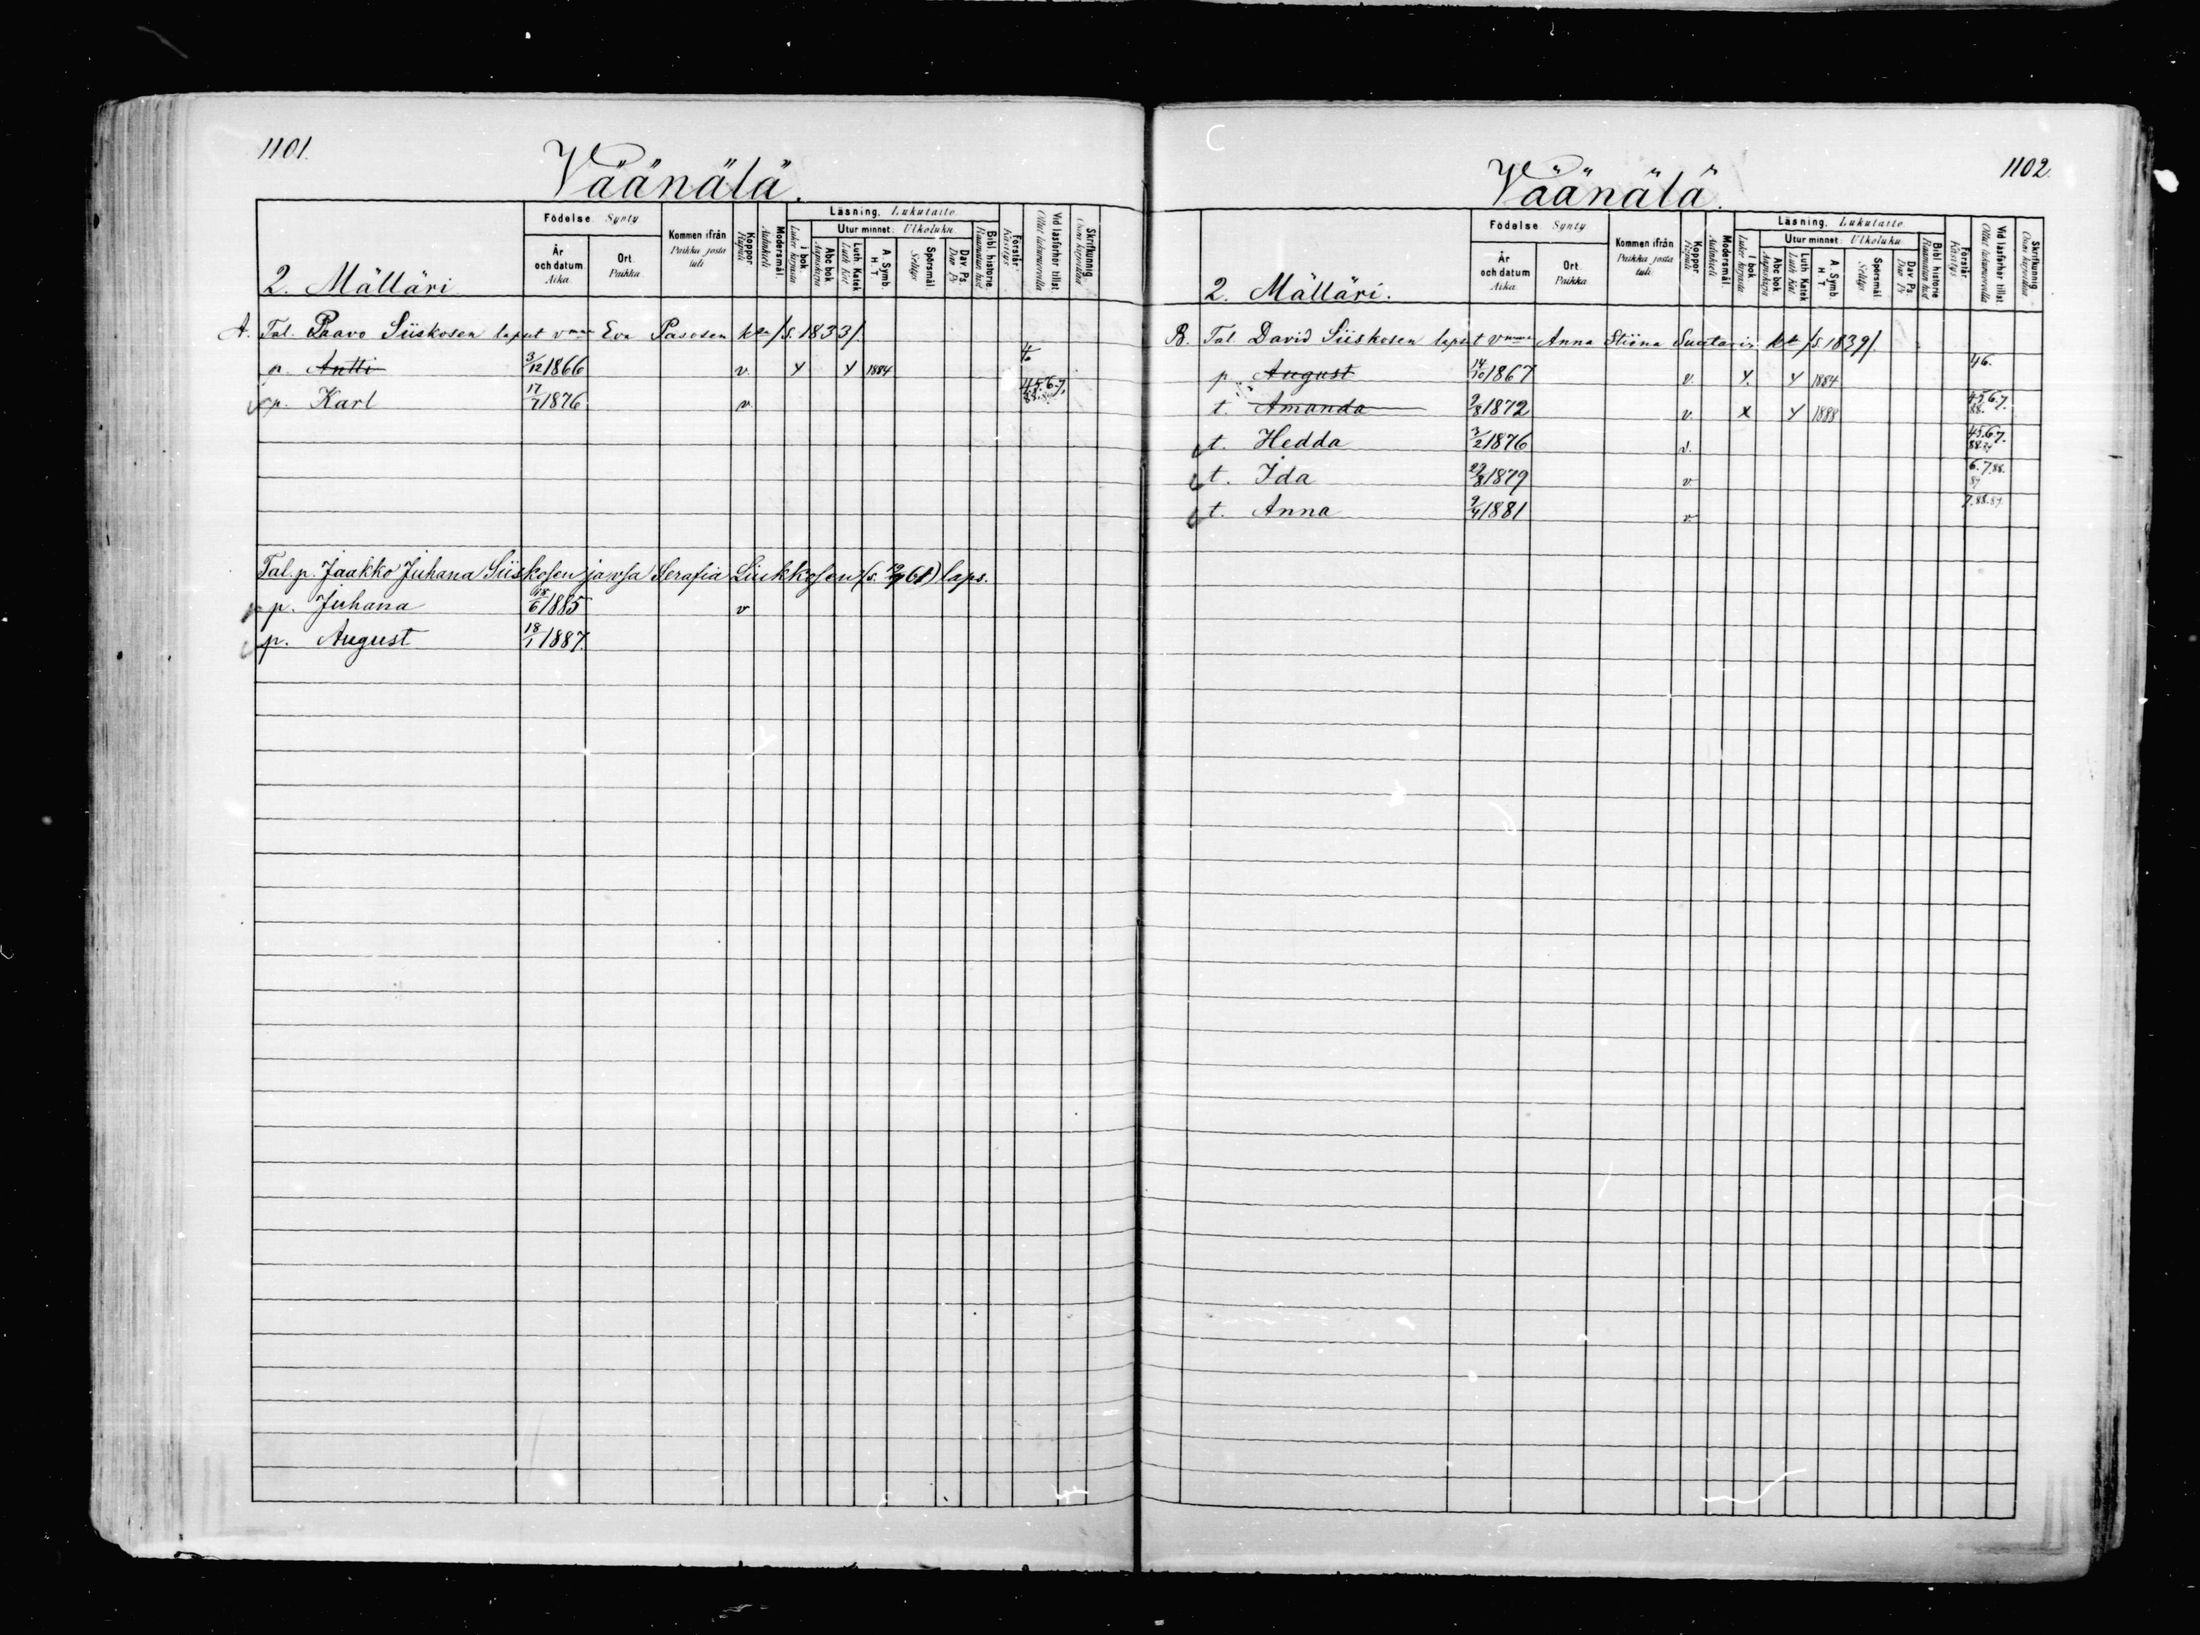 1101.
Väänälä.
2. Mälläri
Födelse. Synty
År och datum Aika.
Ort. Paikka
Kommen ifrån Paikka josta tuli
Koppor Rupuli
Modersmål. Äidinkieli
Läsning. Lukutaito.
I bok. Lukee kirjasta
Utur minnet: Ulkoluku.
Abc bok Aapiskirja
Luth. Katek. Luth. Kat
A. Symb. H. T
Spörsmål. Selitys
Dav. Ps. Dav. Ps
Bibl. historie. Raamatun hist
Förstår. Käsitys
Vid läsförhör tillst. Ollut lukuvuoroilla
Skrifkunnig. Osaa kirjoittaa
A. Tal. Paavo Siiskosen laput v Eva Pasosen k /s. 1833/.
p. Antti 3/12 1866 v. Y Y 1884
p. Karl 17/7 1876 v. 4.5.6.7.
Tal. p. Jaakko Juhana Siiskosen ja vsa Serafia Liukkosen (s. 61) laps.
p. Juhana 1885 v
p. August 18/1 1887.
1102.
Väänälä.
2. Mälläri.
Födelse. Synty
År och datum Aika
Ort. Paikka
Kommen ifrån Paikka josta tuli
Koppor Rupuli
Modersmål. Äidinkieli
Läsning. Lukutaito.
I bok. Lukee kirjasta
Utur minnet: Ulkoluku
Abc bok Aapiskirja
Luth. Katek Luth. Kat
A. Symb. H. T
Spörsmål Selitys
Dav. Ps. Dav. Ps
Bibl. historie Raamatun hist
Förstår. Käsitys
Vid läsförhör tillst Ollut lukuvuoroilla
Skrifkunnig Osaa kirjoittaa
B. Tal. David Siiskosen laput v Anna Stiina Suutarin k /s. 1839/.
p August 14/10 1867 v. Y. Y 1884 46.
t. Amanda 9/8 1872 v. X Y 1888 4.5.6.7. 88.
t. Hedda 3/2 1876 v. 4.5.6.7.
t. Ida 1879 v 6.7.88. 89
t. Anna 9/4 1881 v 7.88.89.